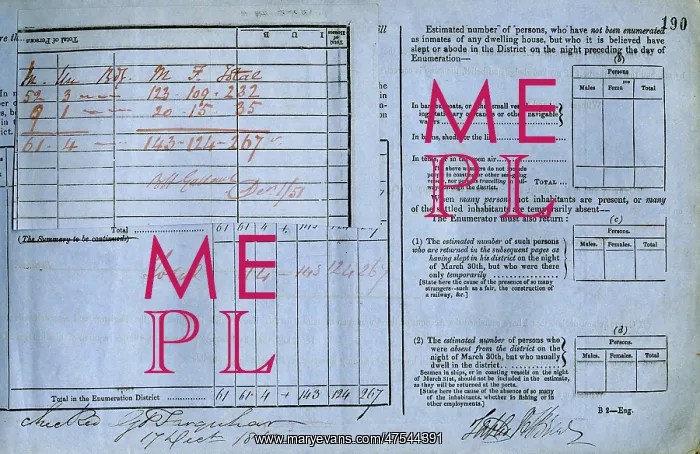 190
Total of Persons
M. Un B.
M F. Total
52 3 — — 123 - 109 - 232
9 1 — — 20 - 15 35
61 - 4 - - 143 - 124 - 267
Dec 1/51
Total
61 61 4
(The Summary to be continued:)
Total
143 124 267
Total in the Enumeration District
61 61 4 143 124 267
Checked
17 Oct
Estimated number of persons, who have not been enumerated
as inmates of any dwelling house, but who it is believed have
slept or abode in the District on the night preceding the day of
Enumeration—
(b)
Persons
Males Total
In barns, sheds, or the like
TOTAL ...
When many persons not inhabitants are present, or many
of the settled inhabitants are temporarily absent—
The Enumerator must also return :
(c)
Persons.
Males. Females. Total.
(1) The estimated number of such persons
who are returned in the subsequent pages as
having slept in his district on the night
of March 30th, but who were there
only temporarily
[State here the cause of the presence of so many
strangers—such as a fair, the construction of
a railway, &c.]
(d)
Persons.
Males. Females. Total.
(2) The estimated number of persons who
were absent from the district on the
night of March 30th, but who usually
dwell in the district
Seamen in ships, or in coasting vessels on the night
of March 31st, should not be included in the estimate,
as they will be returned at the ports.
[State here the cause of the absence of so many
of the inhabitants, whether in fishing or in
other employments.]
B 2—Eng.
ME
PL
ME
PL
www.maryevans.com/47544391